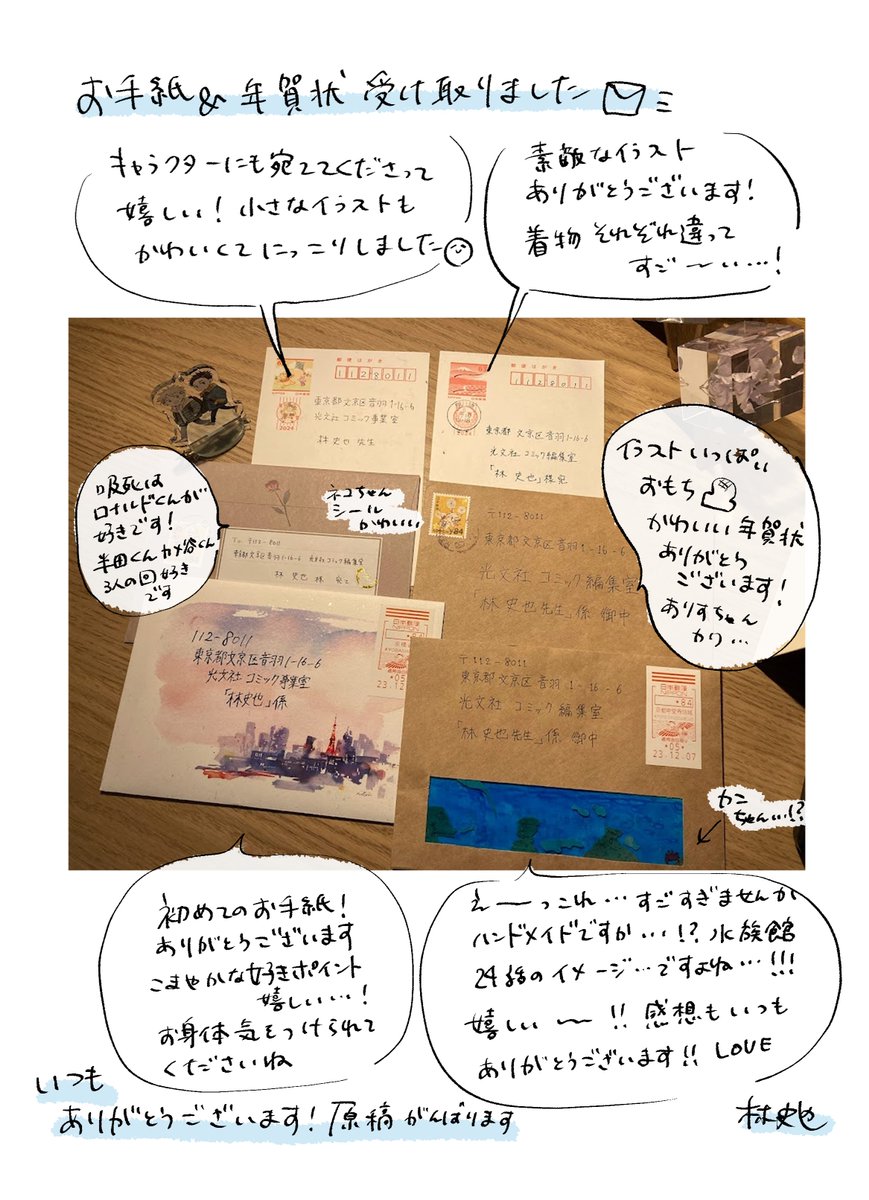 お手紙&年賀状 受け取りました
キャラクターにも宛ててくださって
嬉しい！小さなイラストも
かわいくてにっこりしました
素敵なイラスト
ありがとうございます！
着物 それぞれ違って
すご〜い…！
郵便はがき
1128011
東京都文京区音羽1-16-6
光文社 コミック事業室
林 史也 先生
2024
郵便はがき
1128011
東京都 文京区音羽1-16-6
光文社 コミック編集室
「林 史也」様宛
吸死は
ロナルドくんが
好きです！
半田くん カメ谷くん
3人の回 好き
です
ネコちゃん
シール
かわいい
To 〒112-8011
東京都文京区音羽1-16-6 光文社コミック編集室
林 史也
84
〒112-8011
東京都文京区音羽1-16-6
光文社 コミック編集室
「林 史也先生」係 御中
イラストいっぱい
おもち
かわいい年賀状
ありがとう
ございます！
ありすちゃん
カワ…
112-8011
東京都文京区音羽1-16-6
光文社 コミック事業室
「林史也」係
日本郵便
NIPPON
84
23.12
〒112-8011
東京都文京区音羽1-16-6
光文社 コミック編集室
「林 史也先生」係 御中
日本郵便
84
05
23.12.07
カニ
ちゃん…!?
初めてのお手紙！
ありがとうございます
こまやかな好きポイント
嬉しい…！
お身体 気をつけられて
くださいね
え——っこれ…すごすぎませんか
ハンドメイドですか…!? 水族館
24話のイメージ…ですよね…!!!
嬉しい〜!! 感想もいつも
ありがとうございます!! LOVE
いつも
ありがとうございます！原稿 がんばります
林史也